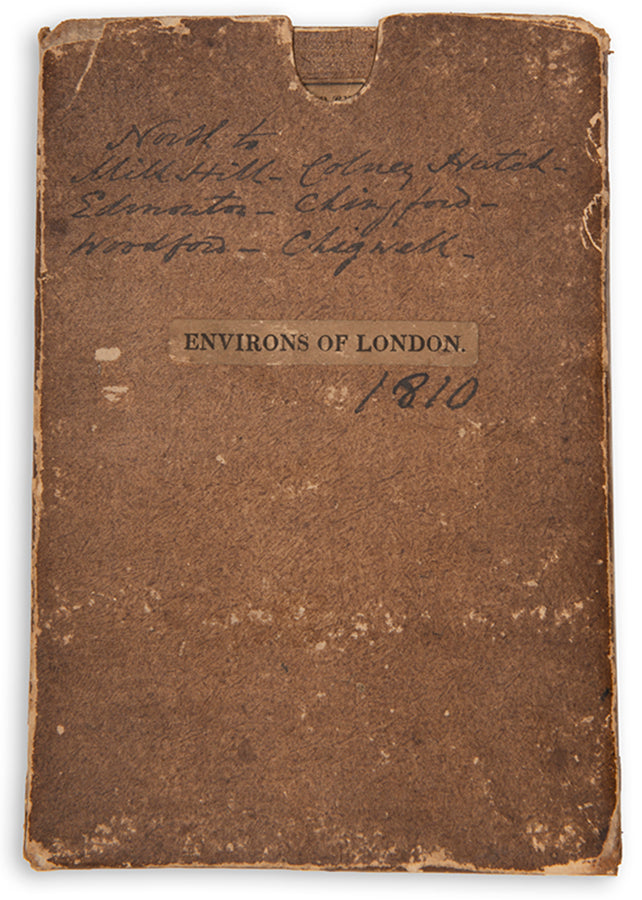 North to
Mill Hill - Colney Hatch -
Edmonton - Chingford -
Woodford - Chigwell -
ENVIRONS OF LONDON.
1810